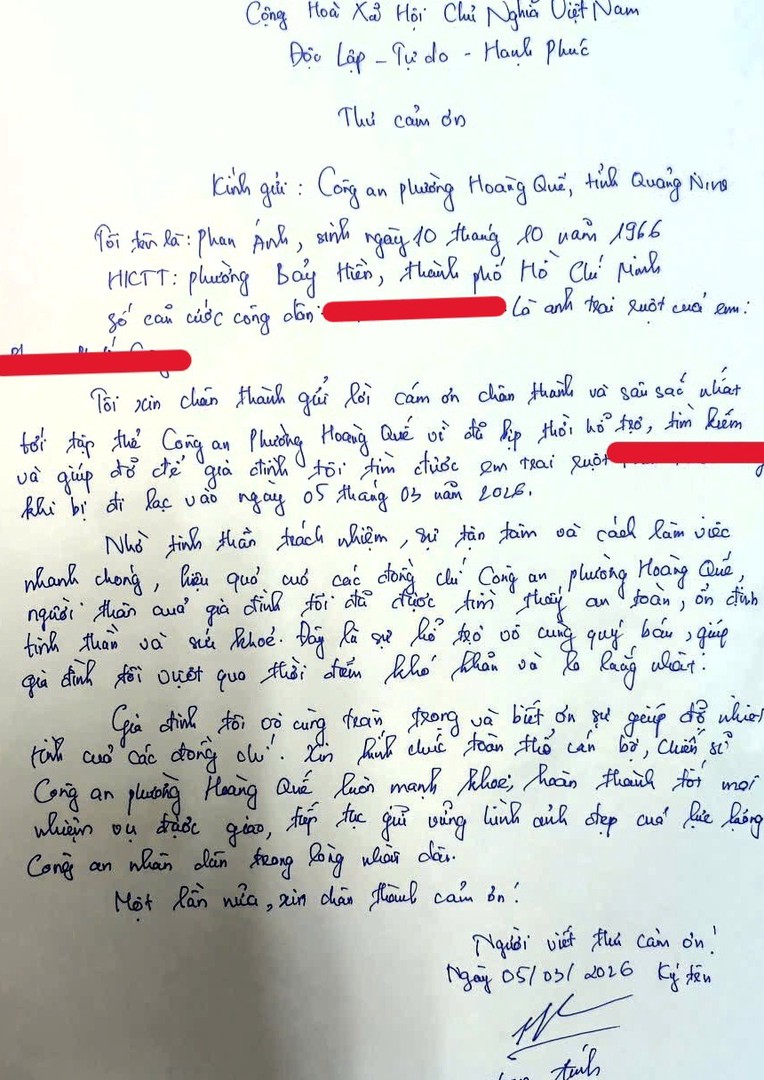 Cộng Hoà Xã Hội Chủ Nghĩa Việt Nam
Độc Lập - Tự do - Hạnh Phúc
Thư cảm ơn
Kính gửi : Công an phường Hoàng Quế, tỉnh Quảng Ninh
Tôi tên là : Phan Ánh, sinh ngày 10 tháng 10 năm 1966
HKTT : phường Bảy Hiền, thành phố Hồ Chí Minh
số căn cước công dân là anh trai ruột cuả em :
Tôi xin chân thành gửi lời cám ơn chân thành và sâu sắc nhất
tới tập thể Công an Phường Hoàng Quế vì đã kịp thời hổ trợ, tìm kiếm
và giúp đở để gia đình tôi tìm được em trai ruột
khi bị đi lạc vào ngày 05 tháng 03 năm 2026.
Nhờ tinh thần trách nhiệm, sự tận tâm và cách làm việc
nhanh chóng, hiệu quả cuả các đồng chí Công an phường Hoàng Quế,
người thân cuả gia đình tôi đã được tìm thấy an toàn, ổn định
tinh thần và sức khoẻ. Đây là sự hổ trợ vô cùng quý báu, giúp
gia đình tôi vượt qua thời điểm khó khăn và lo lắng nhất.
Gia đình tôi vô cùng trân trọng và biết ơn sự giúp đở nhiệt
tình cuả các đồng chí. Xin kính chúc toàn thể cán bộ, chiến sĩ
Công an phường Hoàng Quế luôn mạnh khoẻ, hoàn thành tốt mọi
nhiệm vụ được giao, tiếp tục giữ vững hình ảnh đẹp cuả lực lượng
Công an nhân dân trong lòng nhân dân.
Một lần nửa, xin chân thành cảm ơn !
Người viết thư cảm ơn !
Ngày 05/03/2026 Ký tên